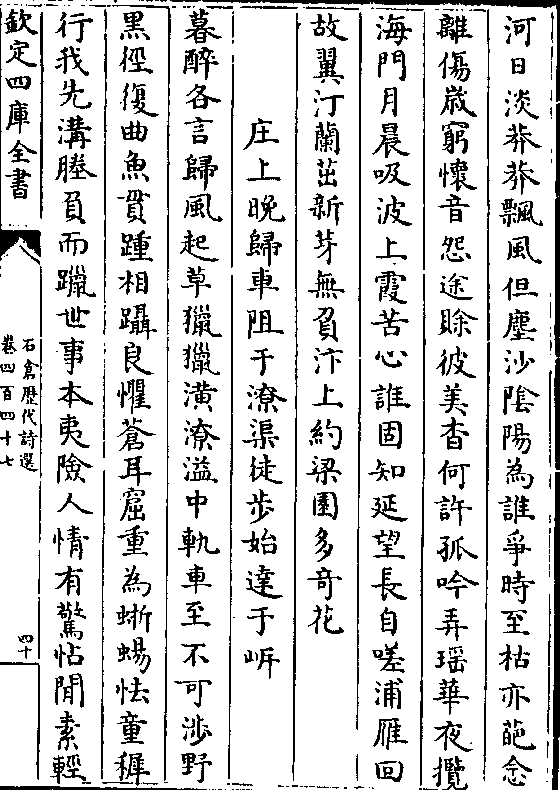 河日淡莽莽飄風但塵沙陰陽為誰爭時至枯亦葩念
離傷嵗窮懷音怨途賖彼美杳何許孤吟弄瑶華夜攬
海門月晨吸波上霞苦心誰固知延望長自嗟浦雁回
故翼汀蘭茁新芽無負汴上約梁園多竒花
庄上晚歸車阻于潦渠徒步始達于㟁
暮醉各言歸風起草獵獵潢潦溢中軌車至不可渉野
黒徑復曲魚貫踵相躡良懼蒼耳窟重為蜥蜴怯童穉
行我先溝塍負而躐世事本夷險人情有驚怗閒素輕
欽定四庫全書
石倉歴代詩選
卷四百四十七
四十